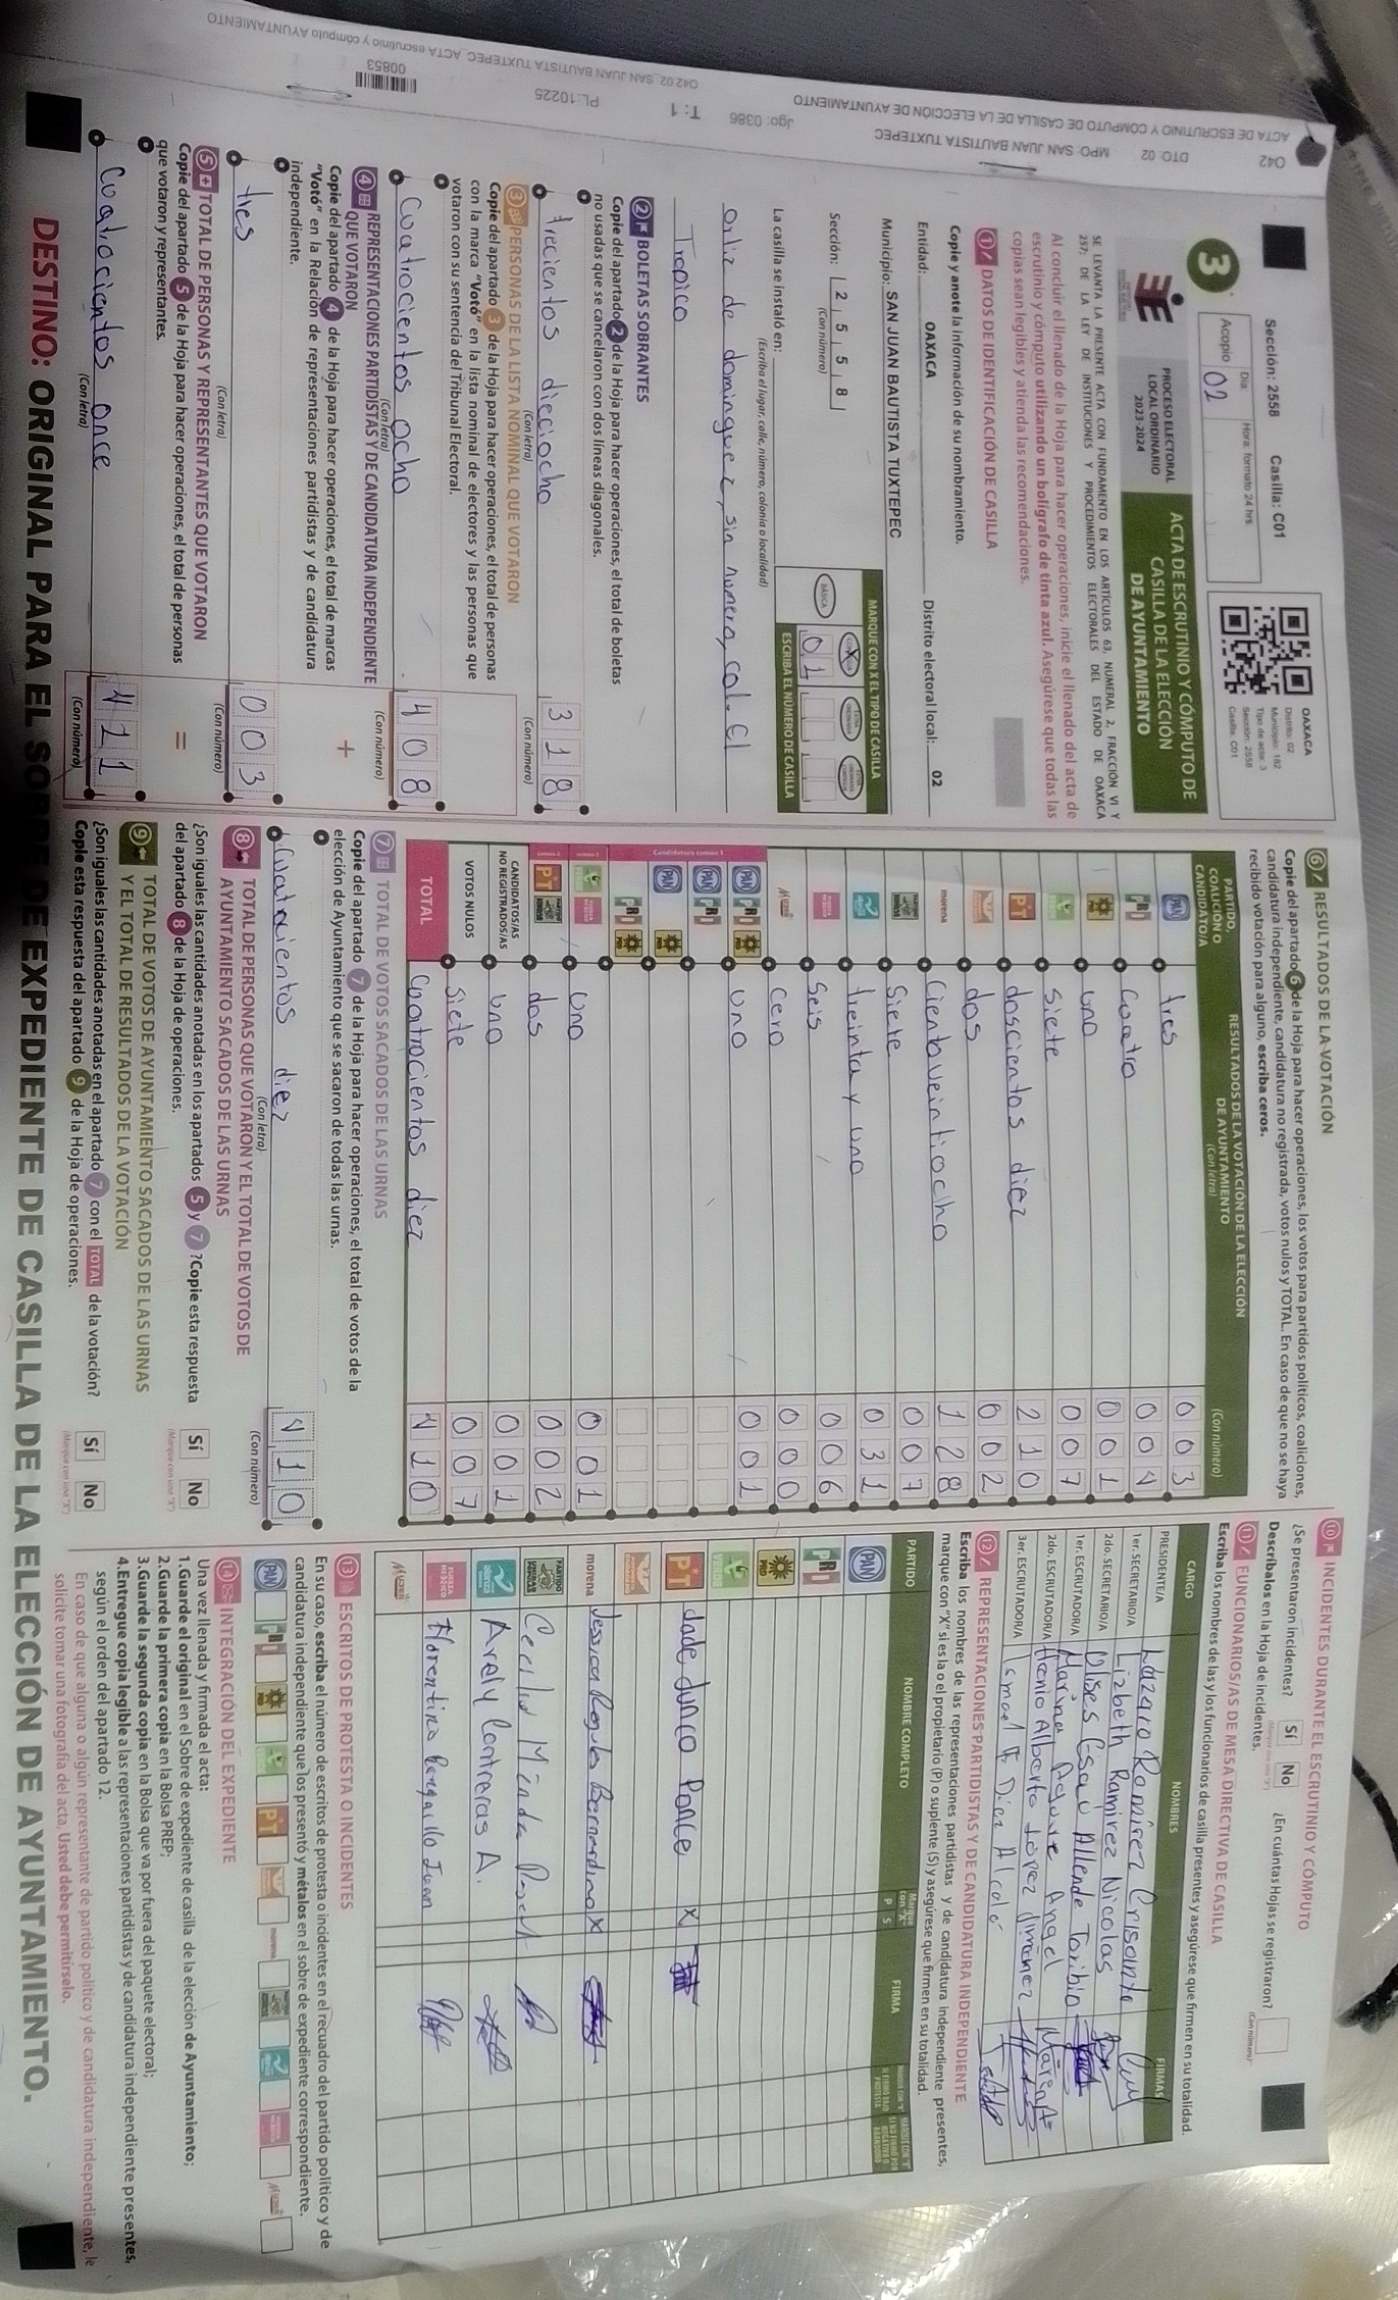 ACTA DE ESCRUTINIO Y CÓMPUTO DE CASILLA DE LA ELECCIÓN DE AYUNTAMIENTO
042 DTO: 02 MPO: SAN JUAN BAUTISTA TUXTEPEC
Jgo: 0386 T: 1
PL:10225
042 02 SAN JUAN BAUTISTA TUXTEPEC ACTA escrutinio y cómputo AYUNTAMIENTO
00853
Sección: 2558 Casilla: C01
Día Hora: formato 24 hrs
Acopio 02
OAXACA
Distrito: 02
Municipio: 182
Tipo de acta: 3
Sección: 2558
Casilla: C01
3
PROCESO ELECTORAL
LOCAL ORDINARIO
2023-2024
ACTA DE ESCRUTINIO Y CÓMPUTO DE
CASILLA DE LA ELECCIÓN
DE AYUNTAMIENTO
SE LEVANTA LA PRESENTE ACTA CON FUNDAMENTO EN LOS ARTÍCULOS 63, NUMERAL 2, FRACCIÓN VI Y
257; DE LA LEY DE INSTITUCIONES Y PROCEDIMIENTOS ELECTORALES DEL ESTADO DE OAXACA
Al concluir el llenado de la Hoja para hacer operaciones, inicie el llenado del acta de
escrutinio y cómputo utilizando un bolígrafo de tinta azul. Asegúrese que todas las
copias sean legibles y atienda las recomendaciones.
1 DATOS DE IDENTIFICACIÓN DE CASILLA
Copie y anote la información de su nombramiento.
Entidad: OAXACA Distrito electoral local: 02
Municipio: SAN JUAN BAUTISTA TUXTEPEC
Sección: 2 5 5 8
(Con número)
MARQUE CON X EL TIPO DE CASILLA
BÁSICA X
01
ESCRIBA EL NÚMERO DE CASILLA
La casilla se instaló en:
(Escriba el lugar, calle, número, colonia o localidad)
ortiz de dominguez, sin numero, col. El
Tropico
2 BOLETAS SOBRANTES
Copie del apartado 2 de la Hoja para hacer operaciones, el total de boletas
no usadas que se cancelaron con dos líneas diagonales.
trecientos dieciocho 318
(Con letra) (Con número)
3 PERSONAS DE LA LISTA NOMINAL QUE VOTARON
Copie del apartado 3 de la Hoja para hacer operaciones, el total de personas
con la marca "Votó" en la lista nominal de electores y las personas que
votaron con su sentencia del Tribunal Electoral.
Cuatrocientos ocho 408
(Con letra) (Con número)
4 REPRESENTACIONES PARTIDISTAS Y DE CANDIDATURA INDEPENDIENTE
QUE VOTARON
Copie del apartado 4 de la Hoja para hacer operaciones, el total de marcas
"Votó" en la Relación de representaciones partidistas y de candidatura
independiente.
+
tres 003
(Con letra) (Con número)
5 TOTAL DE PERSONAS Y REPRESENTANTES QUE VOTARON
Copie del apartado 5 de la Hoja para hacer operaciones, el total de personas
que votaron y representantes.
=
Cuatrocientos once 411
(Con letra) (Con número)
6 RESULTADOS DE LA VOTACIÓN
Copie del apartado 6 de la Hoja para hacer operaciones, los votos para partidos políticos, coaliciones,
candidatura independiente, candidatura no registrada, votos nulos y TOTAL. En caso de que no se haya
recibido votación para alguno, escriba ceros.
PARTIDO,
COALICIÓN O
CANDIDATO/A
RESULTADOS DE LA VOTACIÓN DE LA ELECCIÓN
DE AYUNTAMIENTO
(Con letra) (Con número)
PAN tres 003
PRI Cuatro 004
uno 001
siete 007
PT doscientos diez 210
dos 002
morena Cientoveintiocho 128
Siete 007
treinta y uno 031
Seis 006
Cero 000
PAN PRI uno 001
PAN PRI
PAN
PRI
uno 001
PT dos 002
CANDIDATOS/AS
NO REGISTRADOS/AS uno 001
VOTOS NULOS Siete 007
TOTAL Cuatrocientos diez 410
7 TOTAL DE VOTOS SACADOS DE LAS URNAS
Copie del apartado 7 de la Hoja para hacer operaciones, el total de votos de la
elección de Ayuntamiento que se sacaron de todas las urnas.
Cuatrocientos diez 410
(Con letra) (Con número)
8 TOTAL DE PERSONAS QUE VOTARON Y EL TOTAL DE VOTOS DE
AYUNTAMIENTO SACADOS DE LAS URNAS
¿Son iguales las cantidades anotadas en los apartados 5 y 7 ? Copie esta respuesta
del apartado 8 de la Hoja de operaciones.
Sí No
9 TOTAL DE VOTOS DE AYUNTAMIENTO SACADOS DE LAS URNAS
Y EL TOTAL DE RESULTADOS DE LA VOTACIÓN
¿Son iguales las cantidades anotadas en el apartado 7 con el TOTAL de la votación?
Copie esta respuesta del apartado 9 de la Hoja de operaciones.
Sí No
10 INCIDENTES DURANTE EL ESCRUTINIO Y CÓMPUTO
¿Se presentaron incidentes? Sí No ¿En cuántas Hojas se registraron?
(Con número)
Descríbalos en la Hoja de incidentes.
11 FUNCIONARIOS/AS DE MESA DIRECTIVA DE CASILLA
Escriba los nombres de las y los funcionarios de casilla presentes y asegúrese que firmen en su totalidad.
CARGO NOMBRES FIRMAS
PRESIDENTE/A Lazaro Ramirez Crisanto
1er. SECRETARIO/A Lizbeth Ramirez Nicolas
2do. SECRETARIO/A Ulises Esaú Allende Toribio
1er. ESCRUTADOR/A Marina Aguirre Angel
2do. ESCRUTADOR/A Alberto López Jiménez
3er. ESCRUTADOR/A Ismael F Diez Alcalá
12 REPRESENTACIONES PARTIDISTAS Y DE CANDIDATURA INDEPENDIENTE
Escriba los nombres de las representaciones partidistas y de candidatura independiente presentes,
marque con "X" si es la o el propietario (P) o suplente (S) y asegúrese que firmen en su totalidad.
PARTIDO NOMBRE COMPLETO Marque con "X" P S FIRMA
PAN
PRI
PRD
VERDE
PT Jade Junco Ponce X
morena Jessica Regules Bernardino X
Cecilia
Arely Contreras A.
Florentino
13 ESCRITOS DE PROTESTA O INCIDENTES
En su caso, escriba el número de escritos de protesta o incidentes en el recuadro del partido político y de
candidatura independiente que los presentó y métalos en el sobre de expediente correspondiente.
PAN PRI PT morena
14 INTEGRACIÓN DEL EXPEDIENTE
Una vez llenada y firmada el acta:
1.Guarde el original en el Sobre de expediente de casilla de la elección de Ayuntamiento;
2.Guarde la primera copia en la Bolsa PREP;
3.Guarde la segunda copia en la Bolsa que va por fuera del paquete electoral;
4.Entregue copia legible a las representaciones partidistas y de candidatura independiente presentes,
según el orden del apartado 12.
En caso de que alguna o algún representante de partido político y de candidatura independiente, le
solicite tomar una fotografía del acta, Usted debe permitírselo.
DESTINO: ORIGINAL PARA EL SOBRE DE EXPEDIENTE DE CASILLA DE LA ELECCIÓN DE AYUNTAMIENTO.